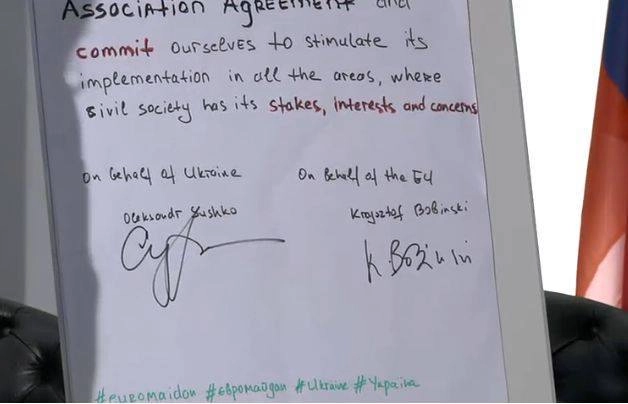 Association Agreement and
commit ourselves to stimulate its
implementation in all the areas, where
civil society has its stakes, interests and concerns
On behalf of Ukraine
On behalf of the EU
Oleksandr Sushko
Krzysztof Bobinski
K Bobinski
#euromaidan #євромайдан #Ukraine #Україна